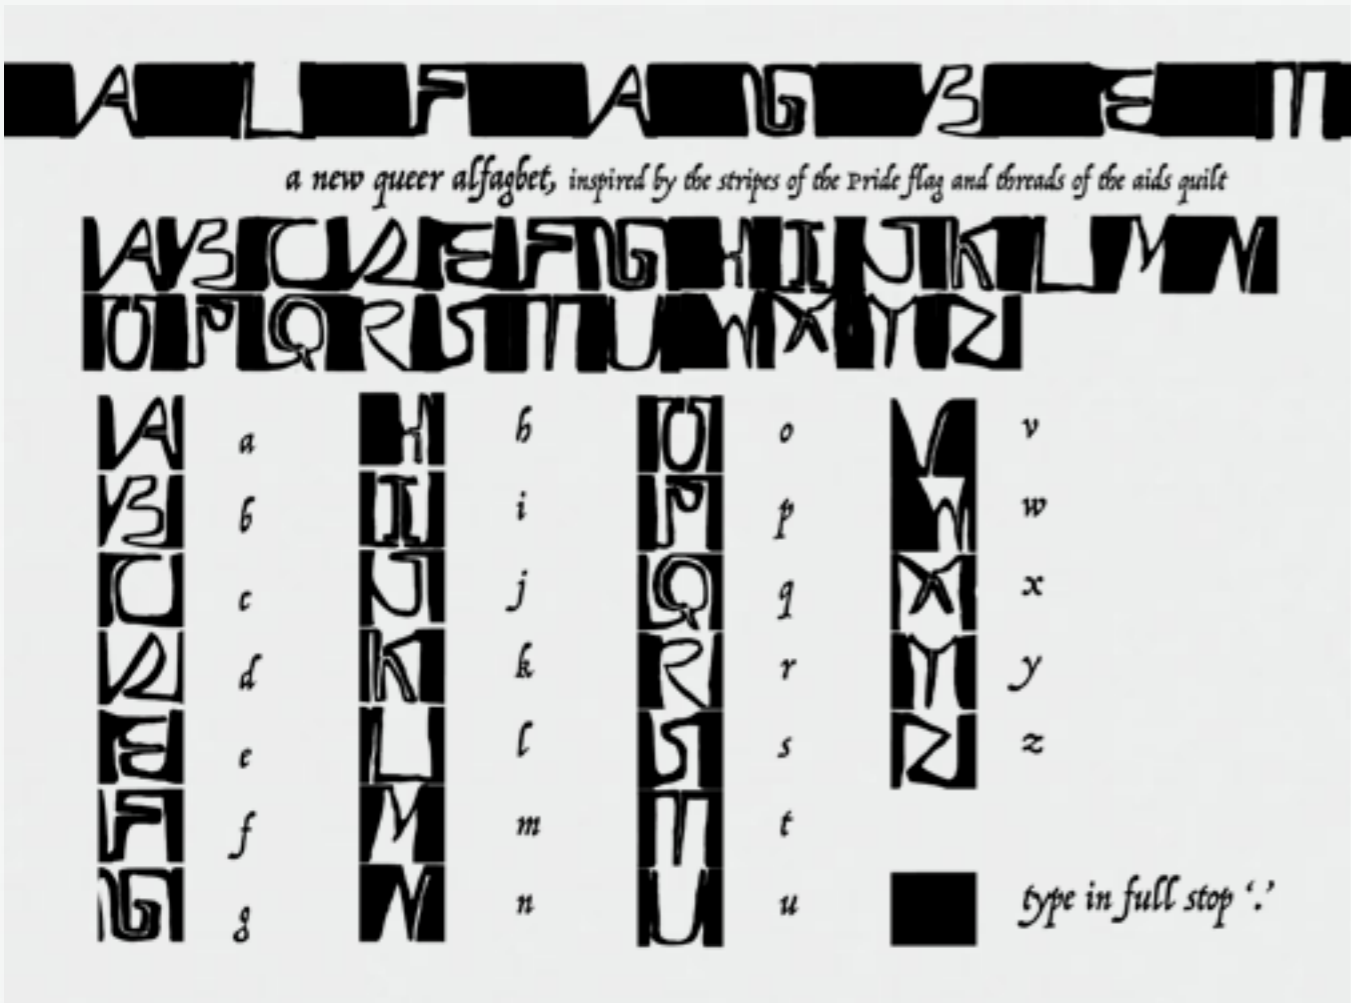 ALFAGBET
a new queer alfagbet, inspired by the stripes of the Pride flag and threads of the aids quilt
ABCDEFGHIJKLMN
OPQRSTUWXYZ
A a
B b
C c
D d
E e
F f
G g
H h
I i
J j
K k
L l
M m
N n
O o
P p
Q q
R r
S s
T t
U u
V v
W w
X x
Y y
Z z
type in full stop ‘.’